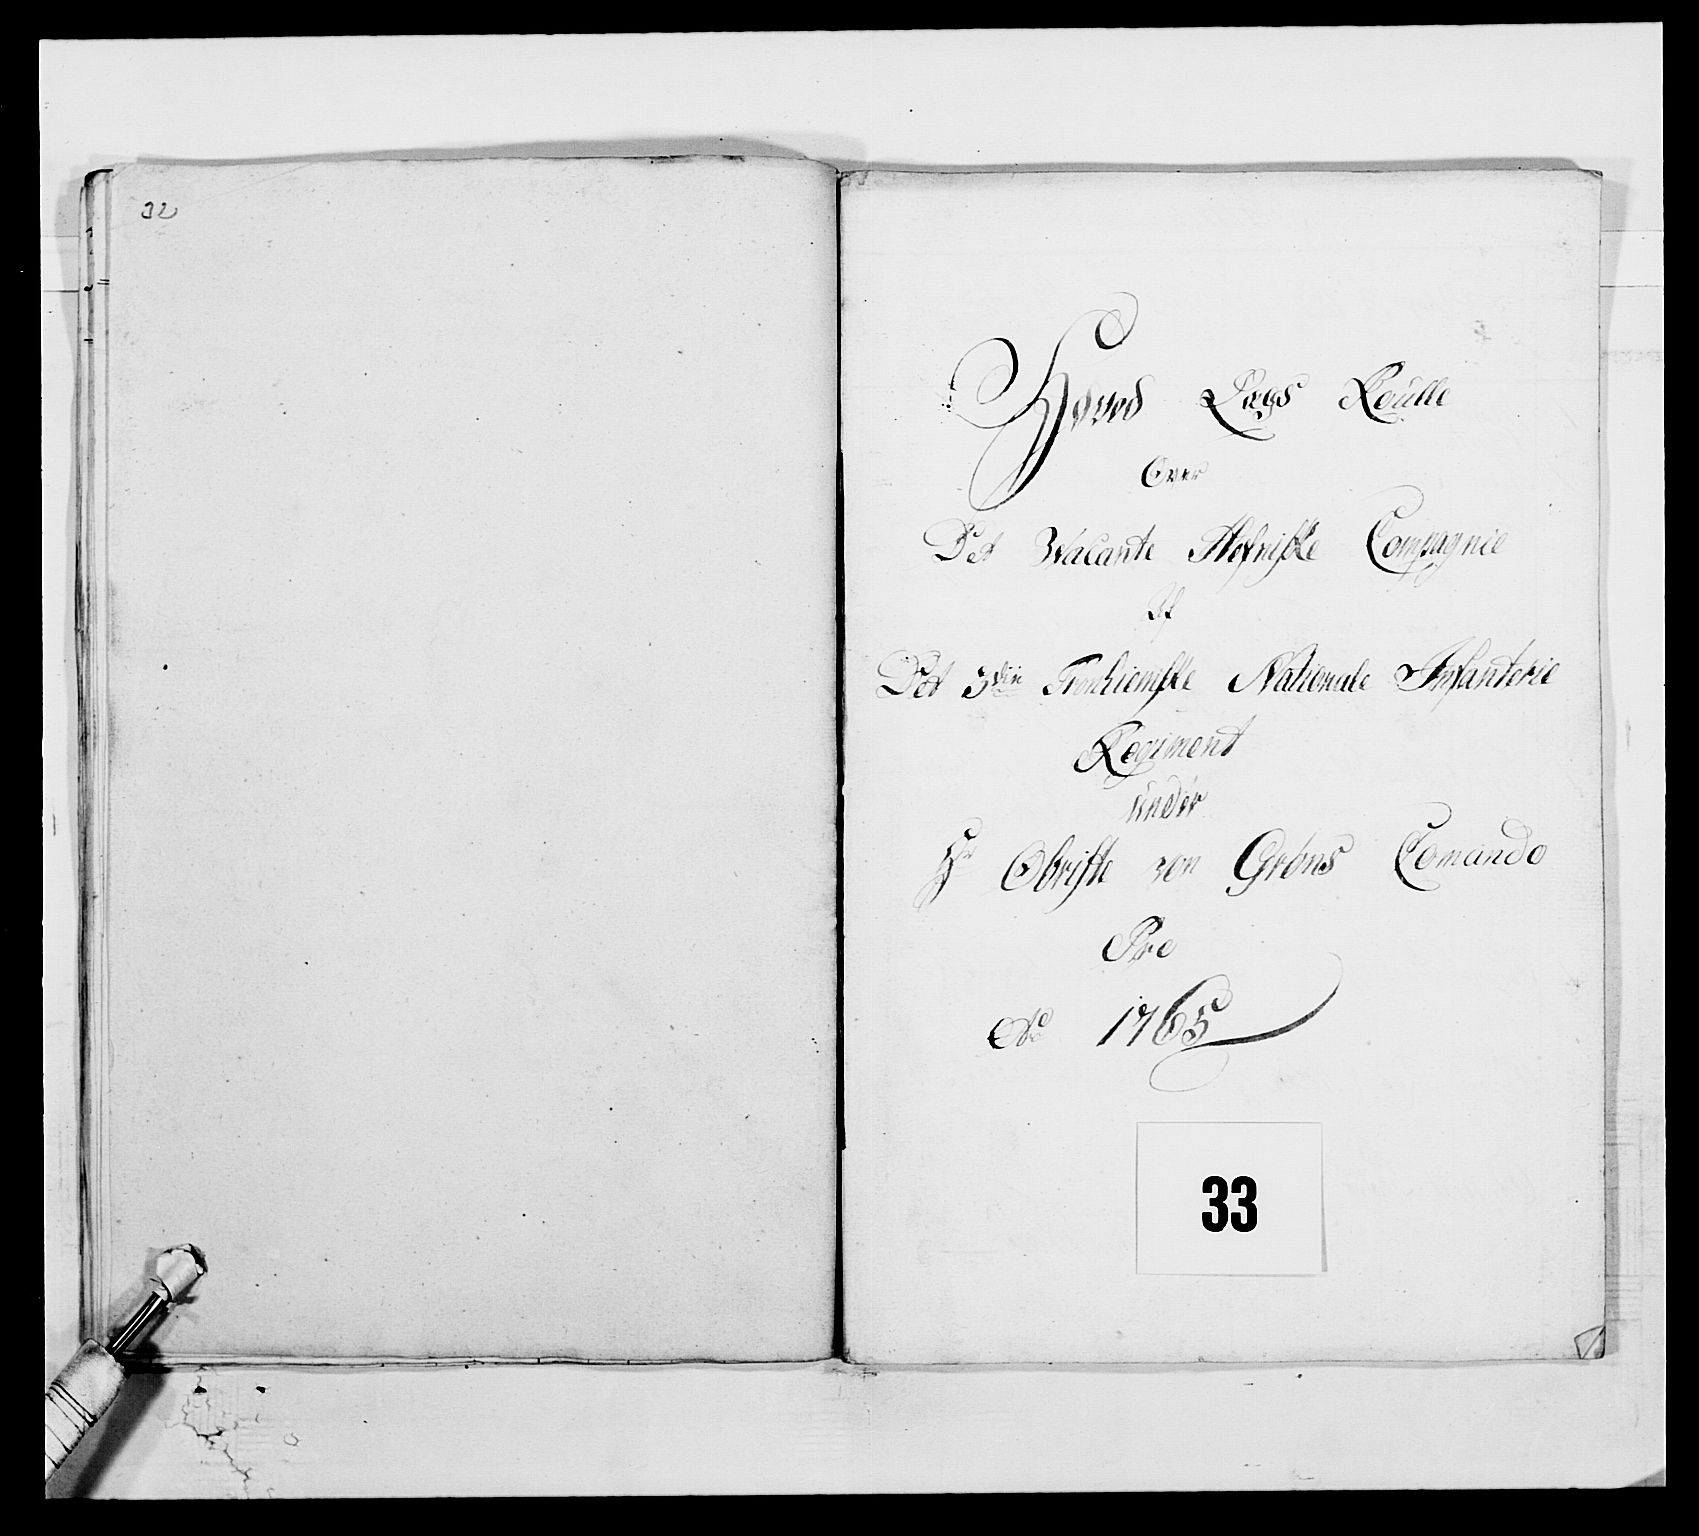 32
Hoved Lægs Roulle
Over
Det Vacante Stofniske Compagnie
Af
Det 3die Tronhiemske Nationale Infanterie
Regiment
under
Hr Obriste von Gröns Comando
Pro
Ao 1765
33